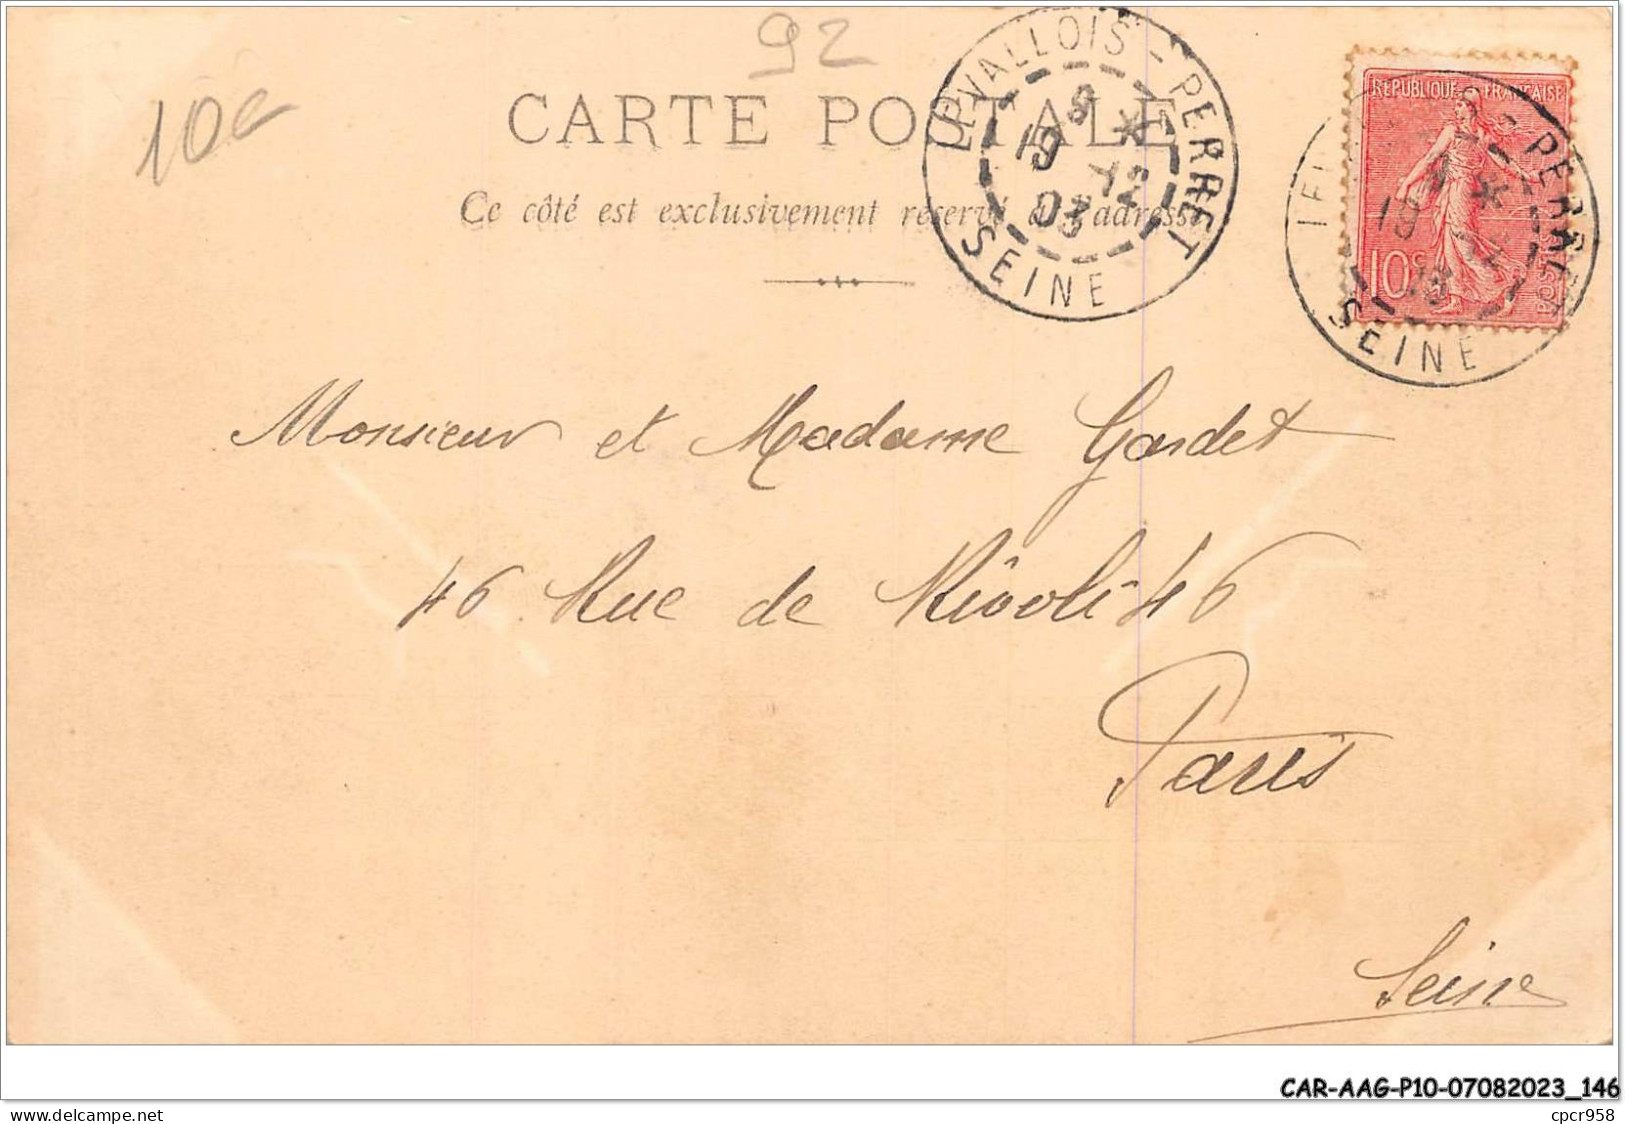 92
10c
CARTE POSTALE
Ce côté est exclusivement réservé à l'adresse
LEVALLOIS-PERRET
19
12
03
SEINE
REPUBLIQUE FRANÇAISE
10c
POSTES
PERRET
19
SEINE
Monsieur et Madame Gardet
46 Rue de Rivoli 46
Paris
Seine
CAR-AAG-P10-07082023_146
www.delcampe.net
cpcr958